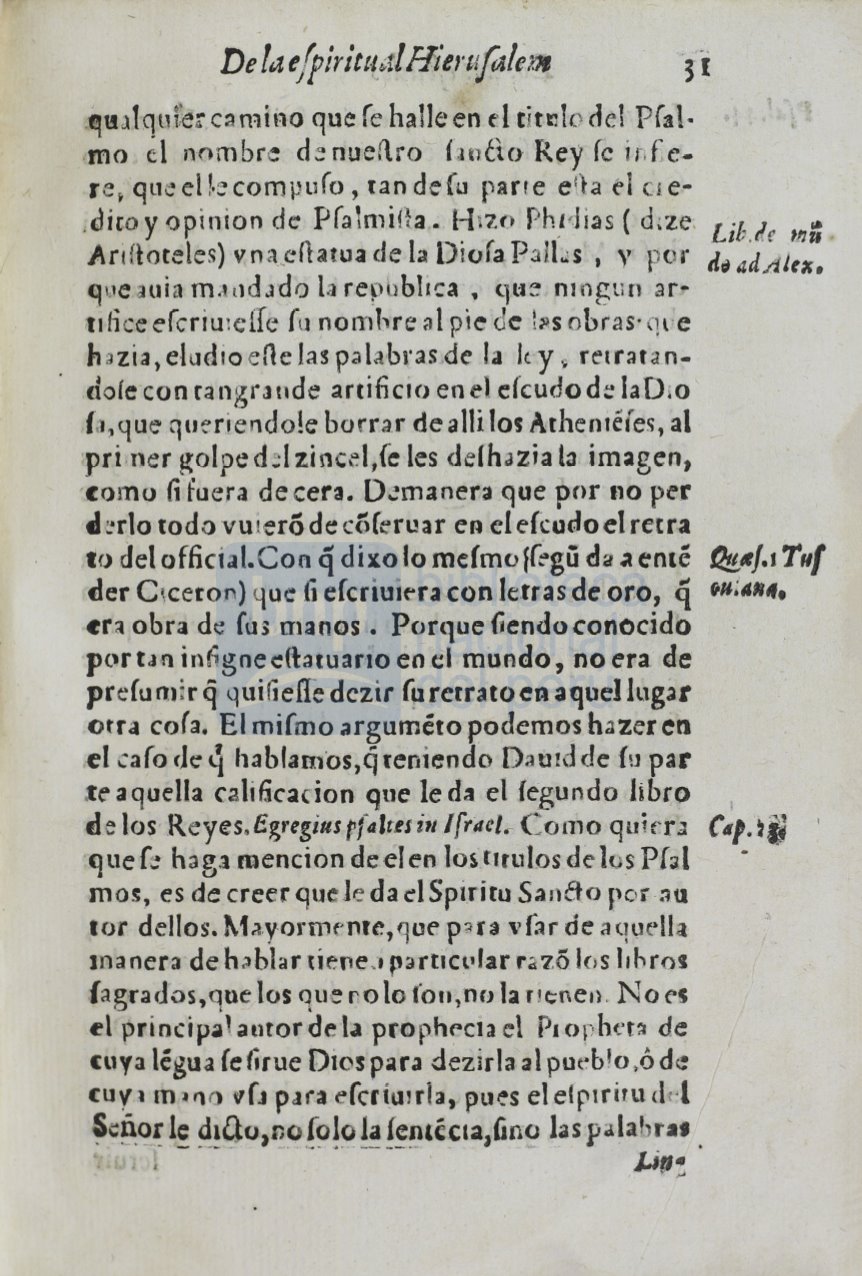 De la eſpiritual Hieruſalem 31
qualquier camino que ſe halle en el titulo del Pſal-
mo el nombre de nueſtro ſancto Rey ſe infie-
re, que el le compuſo, tan de ſu parte eſta el cre-
dito y opinion de Pſalmiſta. Hizo Phidias ( dize
Ariſtoteles) vna eſtatua de la Dioſa Pallas , y por
que auia mandado la republica , que ningun ar-
tifice eſcriuieſſe ſu nombre al pie de las obras que
hazia, eludio eſte las palabras de la ley, retratan-
doſe con tan grande artificio en el eſcudo de la Dio
ſa, que queriendole borrar de alli los Atheniẽſes, al
primer golpe del zincel, ſe les deſhazia la imagen,
como ſi fuera de cera. Demanera que por no per
derlo todo vuierõ de cõſeruar en el eſcudo el retra
to del official. Con q̃ dixo lo meſmo (ſegũ da a entẽ
der Ciceron) que ſi eſcriuiera con letras de oro, q̃
era obra de ſus manos . Porque ſiendo conocido
por tan inſigne eſtatuario en el mundo, no era de
preſumir q̃ quiſieſſe dezir ſu retrato en aquel lugar
otra coſa. El miſmo argumẽto podemos hazer en
el caſo de q̃ hablamos, q̃ teniendo Dauid de ſu par
te aquella calificacion que le da el ſegundo libro
de los Reyes. Egregius pſaltes in Iſrael. Como quiera
que ſe haga mencion de el en los titulos de los Pſal
mos, es de creer que le da el Spiritu Sancto por au
tor dellos. Mayormente, que para vſar de aquella
manera de hablar tienen particular razõ los libros
ſagrados, que los que no lo ſon, no la tienen. No es
el principal autor de la prophecia el Propheta de
cuya lẽgua ſe ſirue Dios para dezirla al pueblo, ô de
cuya mano vſa para eſcriuirla, pues el eſpiritu del
Señor le dicto, no ſolo la ſentẽcia, ſino las palabras
Lin-
Lib. de mũ
do ad Alex.
Quæſ. 1 Tuſ
culana.
Cap.